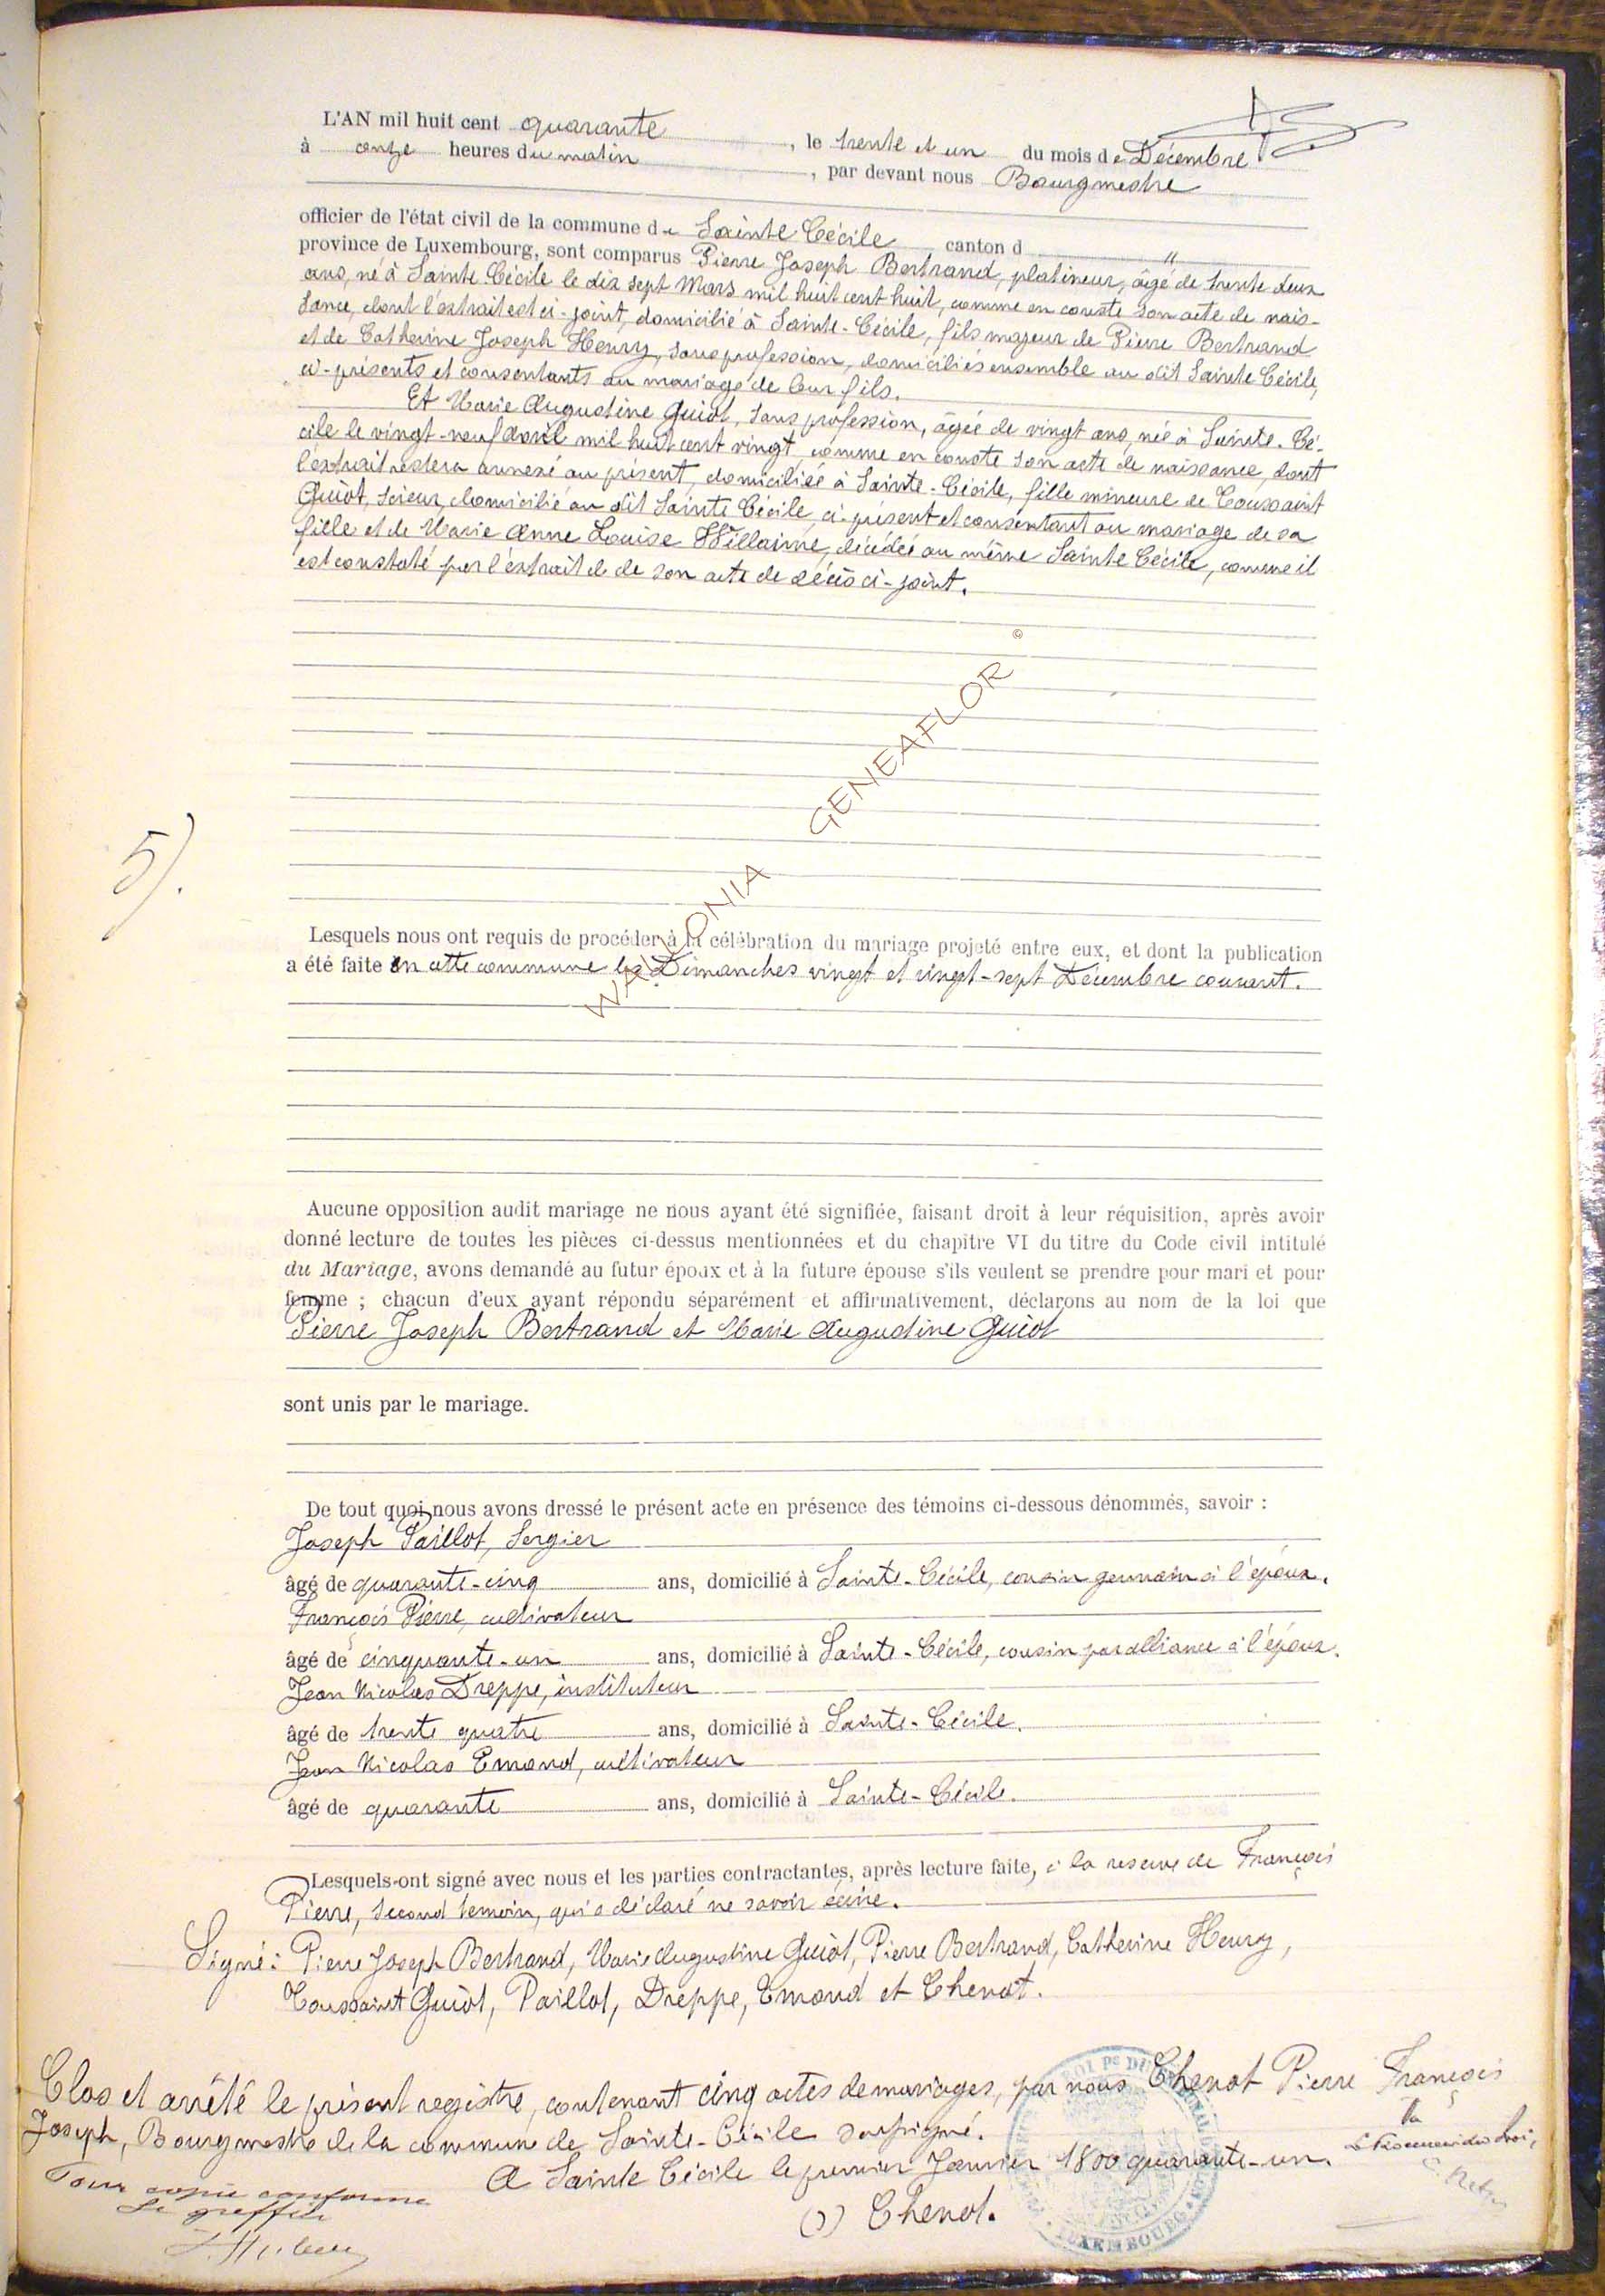 L'AN mil huit cent quarante, le trente et un du mois de Décembre
à onze heures du matin, par devant nous Bourgmestre
officier de l'état civil de la commune de Sainte Cécile canton d "
province de Luxembourg, sont comparus Pierre Joseph Bertrand, platineur, âgé de trente deux
ans, né à Sainte Cécile le dix sept Mars mil huit cent huit, comme en conste son acte de nais-
sance, dont l'extrait est ci-joint, domicilié à Sainte-Cécile, fils majeur de Pierre Bertrand
et de Catherine Joseph Henry, sans profession, domiciliés ensemble au dit Sainte Cécile,
ci-présents et consentants au mariage de leur fils.
Et Marie Augustine Guiot, sans profession, âgée de vingt ans, née à Sainte-Cé-
cile le vingt-neuf avril mil huit cent vingt, comme en conste son acte de naissance, dont
l'extrait restera annexé au présent, domiciliée à Sainte-Cécile, fille mineure de Toussaint
Guiot, scieur, domicilié au dit Sainte Cécile, ci-présent et consentant au mariage de sa
fille et de Marie Anne Louise Willaime, décédée au même Sainte Cécile, comme il
est constaté par l'extrait de son acte de décès ci-joint.
WALLONIA GENEAFLOR ©
5).
Lesquels nous ont requis de procéder à la célébration du mariage projeté entre eux, et dont la publication
a été faite en cette commune les Dimanches vingt et vingt-sept Décembre courant.
Aucune opposition audit mariage ne nous ayant été signifiée, faisant droit à leur réquisition, après avoir
donné lecture de toutes les pièces ci-dessus mentionnées et du chapitre VI du titre du Code civil intitulé
du Mariage, avons demandé au futur époux et à la future épouse s'ils veulent se prendre pour mari et pour
femme ; chacun d'eux ayant répondu séparément et affirmativement, déclarons au nom de la loi que
Pierre Joseph Bertrand et Marie Augustine Guiot
sont unis par le mariage.
De tout quoi nous avons dressé le présent acte en présence des témoins ci-dessous dénommés, savoir :
Joseph Paillot, Sergier
âgé de quarante-cinq ans, domicilié à Sainte-Cécile, cousin germain à l'époux.
François Pierre, cultivateur
âgé de cinquante-un ans, domicilié à Sainte-Cécile, cousin par alliance à l'époux.
Jean Nicolas Dreppe, instituteur
âgé de trente quatre ans, domicilié à Sainte-Cécile.
Jean Nicolas Emond, cultivateur
âgé de quarante ans, domicilié à Sainte-Cécile.
Lesquels ont signé avec nous et les parties contractantes, après lecture faite, à la reserve de François
Pierre, second temoin, qui a déclaré ne savoir écrire.
Signé: Pierre Joseph Bertrand, Marie Augustine Guiot, Pierre Bertrand, Catherine Henry,
Toussaint Guiot, Paillot, Dreppe, Emond et Chenot.
Clos et arrêté le présent registre, contenant cinq actes de mariages, par nous Chenot Pierre François
Joseph, Bourgmestre de la commune de Sainte-Cécile soussigné.
A Sainte Cécile le premier Janvier 1800 quarante-un.
(s) Chenot.
Pour copie conforme
Le greffier
Vu